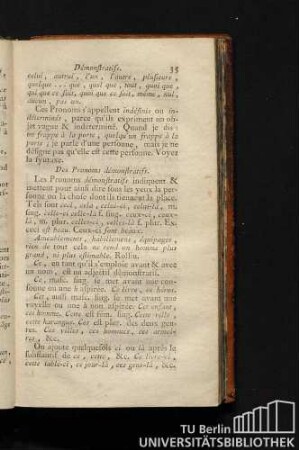 Démonstratifs. 35
celui, autrui, l'un, l'autre, plusieurs,
quelque ... que, quel que, tout, quoi que,
qui que ce soit, quoi que ce soit, même, nul,
aucun, pas un.
Ces Pronoms s'appellent indéfinis ou in-
déterminés, parce qu'ils expriment un ob-
jet vague & indéterminé. Quand je dis:
on frappe à la porte, quelqu'un frappe à la
porte; je parle d'une personne, mais je ne
désigne pas qu'elle est cette personne. Voyez
la syntaxe.
Des Pronoms démonstratifs.
Les Pronoms démonstratifs indiquent &
mettent pour ainsi dire sous les yeux la per-
sonne ou la chose dont ils tiennent la place.
Tels sont ceci, cela, celui-ci, celui-là, m.
sing. celle-ci celle-là f. sing. ceux-ci, ceux-
là, m. plur. celles-ci, celles-là f. plur. Ex.
ceci est beau. Ceux-ci sont beaux.
Ameublements, habillemens, équipages,
rien de tout cela ne rend un homme plus
grand, ni plus estimable. Rollin.
Ce, en tant qu'il s'emploie avant & avec
un nom, est un adjectif démonstratif.
Ce, masc. sing. se met avant une con-
sonne ou une h aspirée. Ce livre, ce héros.
Cet, aussi masc. sing. se met avant une
voyelle ou une h non aspirée. Cet enfant,
cet homme. Cette est fém. sing. Cette ville,
cette harangue. Ces est plur. des deux gen-
res. Ces villes, ces hommes, ces armoi-
res, &c.
On ajoute quelquefois ci ou là après le
substantif de ce, cette, &c. Ce livre-ci,
cette table-ci, ce jour-là, ces gens-là, &c.
TU Berlin
UNIVERSITÄTSBIBLIOTHEK